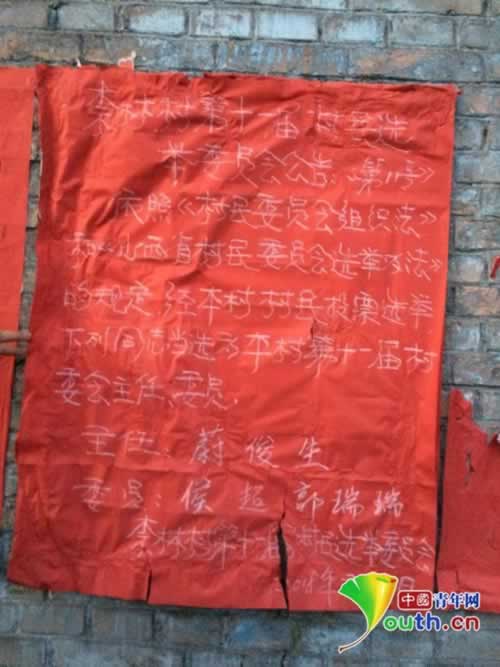 李林村第十一届村民选
举委员会公告:第11号》
依照《村民委员会组织法》
和《山西省村民委员会选举办法》
的规定,经本村村民投票选举
下列同志当选为本村第十一届村
委会主任、委员.
主任:蔚俊生
委员:侯超 郭瑞瑞
李林村第十一届村民选举委员会
2014年 日
中國青年网
Youth.cn